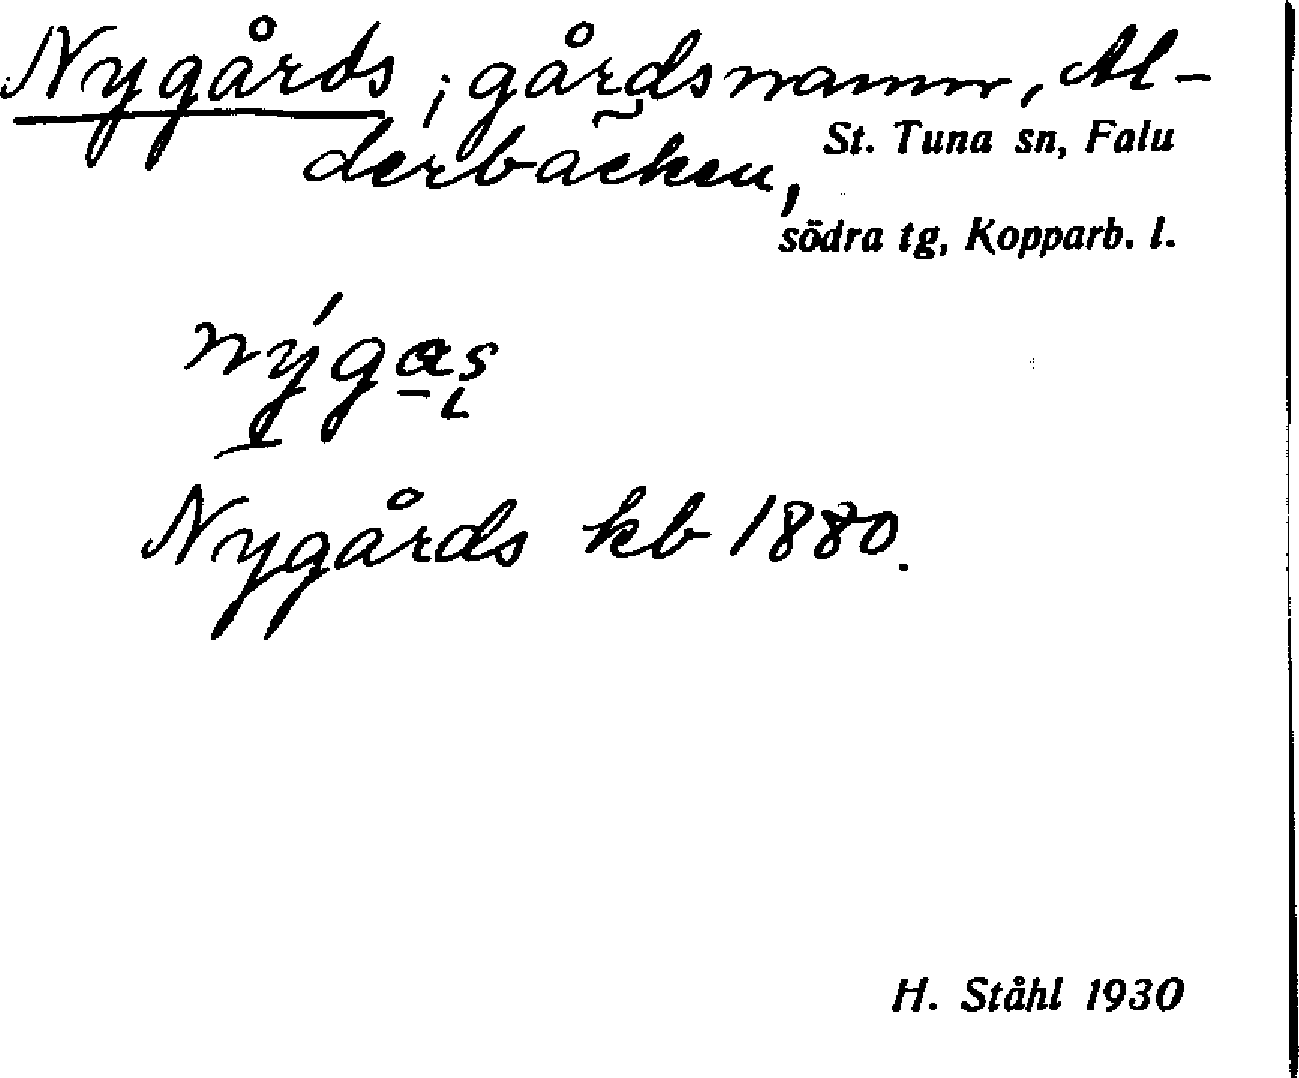 Nygårds, gårdsnamn, Al-
derbäcken,
St. Tuna sn, Falu
södra tg, Kopparb. l.
nýgas
Nygårds kb 1880.
H. Ståhl 1930